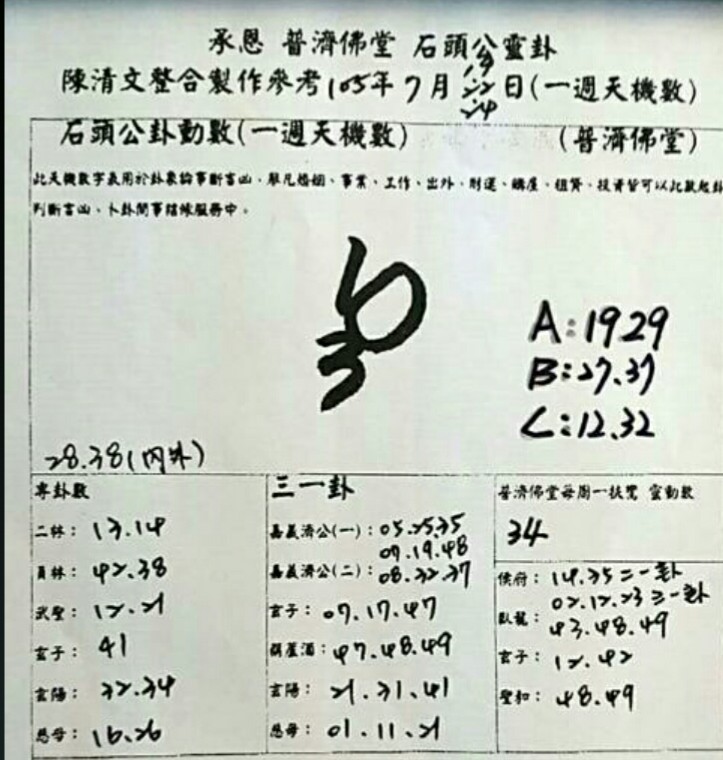 承恩 普濟佛堂 石頭公靈卦
陳清文整合製作參考105年7月19 22 24日(一週天機數)
石頭公卦動數(一週天機數) (普濟佛堂)
此天機數字表用於卦象論事斷吉凶，舉凡婚姻、事業、工作、出外、財運、購屋、租賃、投資皆可以此數起卦
判斷吉凶、卜卦問事結緣服務中。
A:1929
B:27.37
C:12.32
28.38(內外)
專卦數
二林：13.14
員林：42.38
武聖：12.21
玄子：41
玄陽：32.34
慈母：16.26
三一卦
嘉義濟公(一)：05.25.35
09.19.48
嘉義濟公(二)：08.32.37
玄子：07.17.47
葫蘆酒：47.48.49
玄陽：21.31.41
慈母：01.11.21
普濟佛堂每周一扶鸞 靈動數
34
侯府：14.35二一卦
02.12.23三一卦
臥龍：43.48.49
玄子：12.42
聖和：48.49